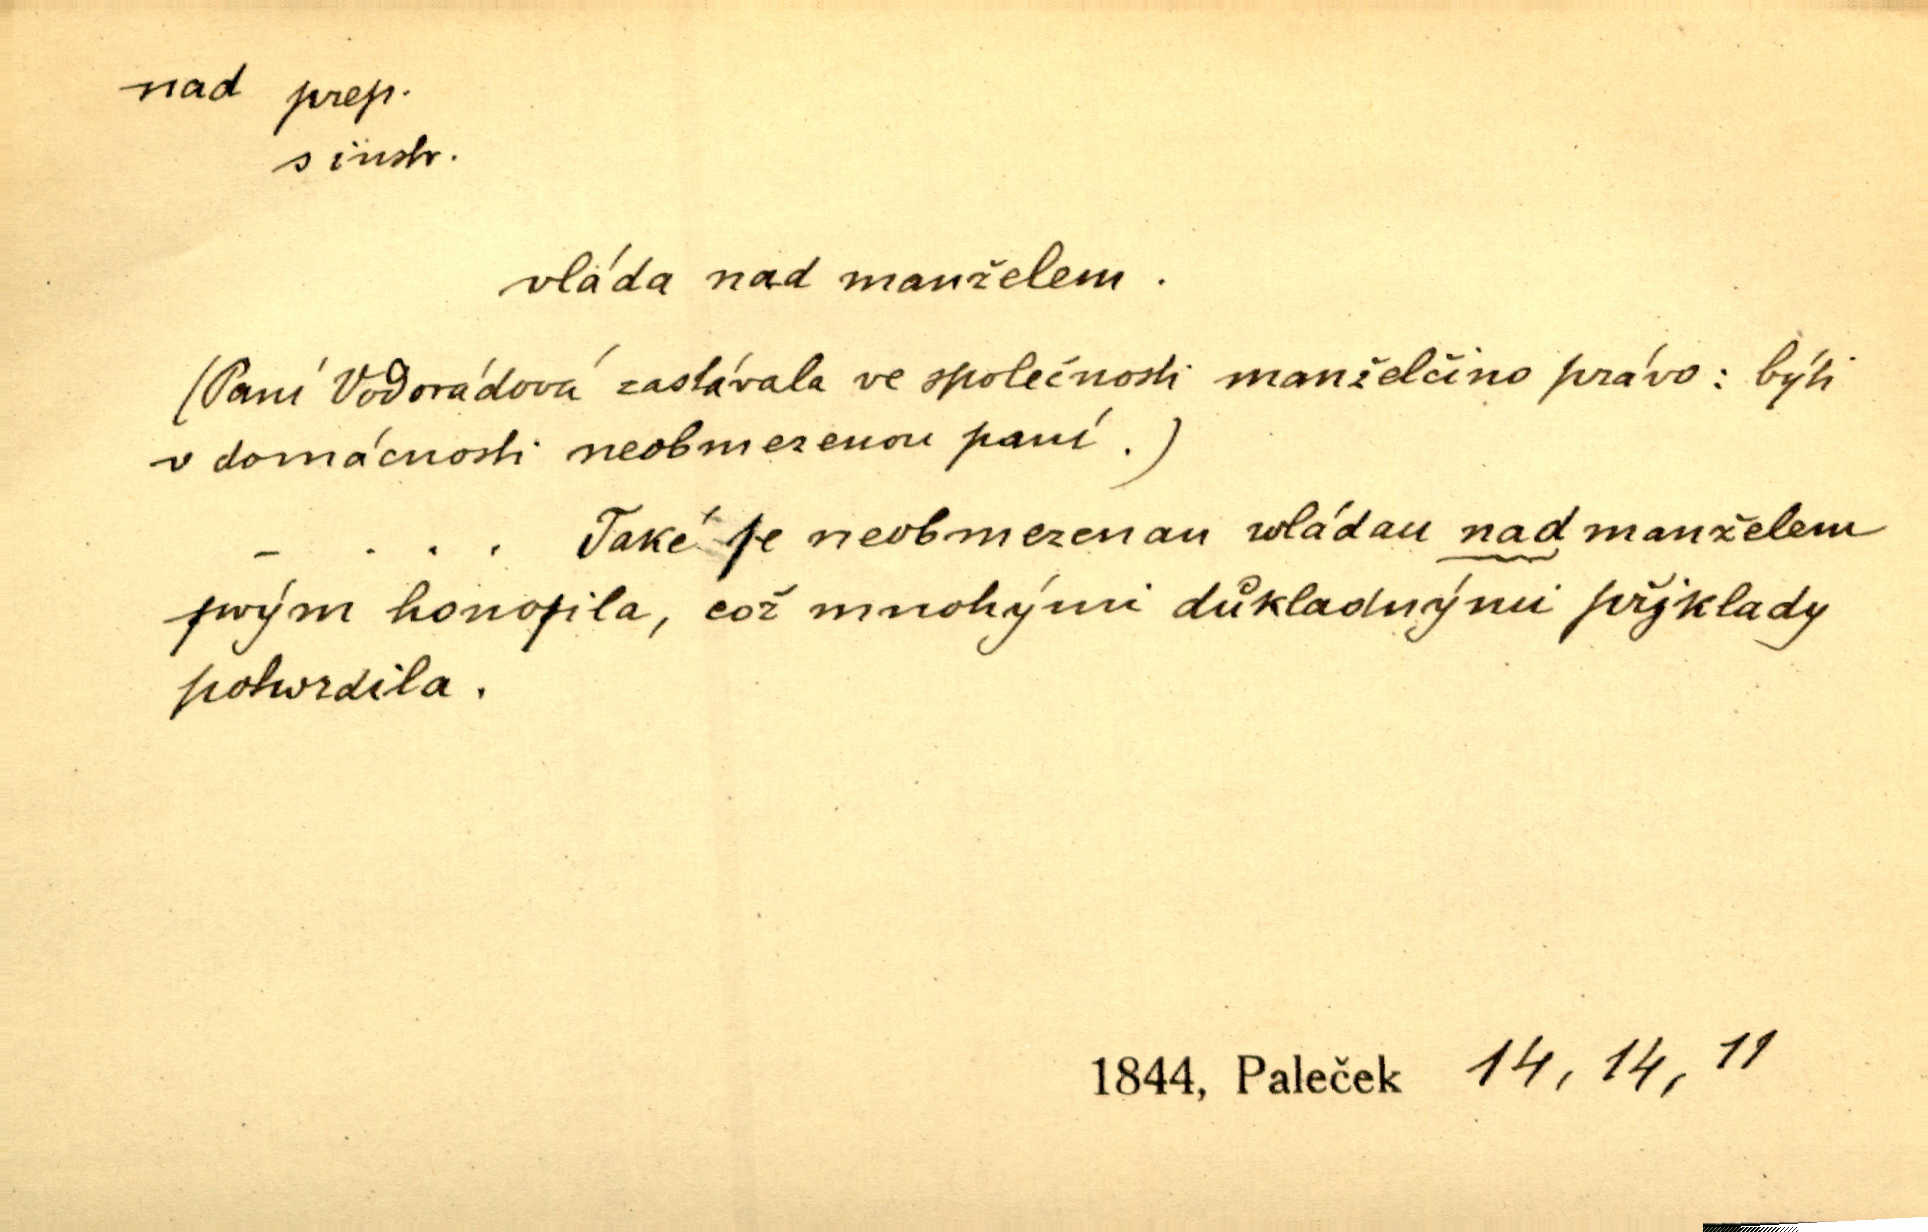 nad prep.
s instr.
vláda nad manželem.
(Paní Vodorádová zastávala ve společnosti manželčino právo: býti
v domácnosti neobmezenou paní.)
– . . . Také ſe neobmezenau wládau nad manželem
ſwým honoſila, což mnohými důkladnými přjklady
potwrdila.
1844, Paleček 14, 14, 11